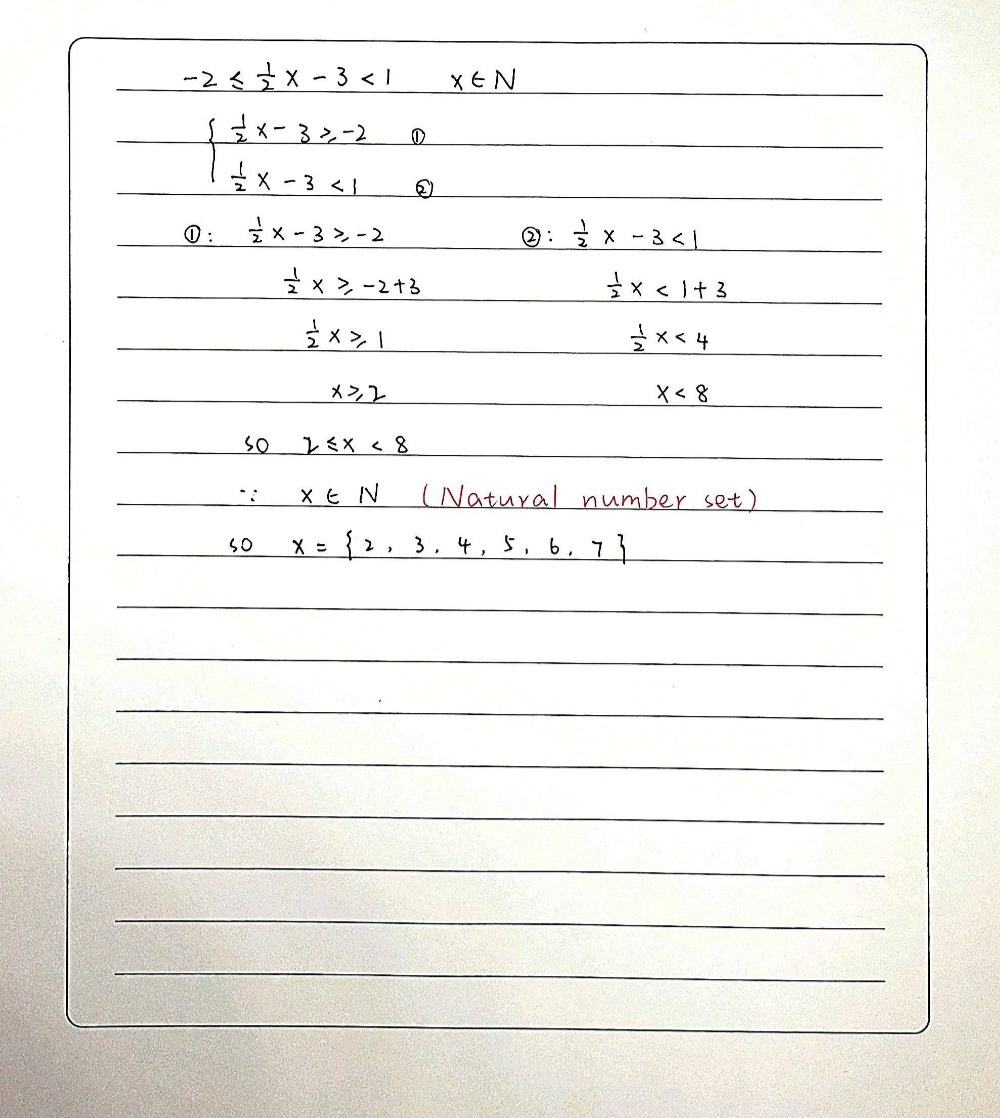 -2 ≤ 1/2 x - 3 < 1 x ∈ N
{ 1/2 x - 3 ≥ -2 ①
1/2 x - 3 < 1 ②
①: 1/2 x - 3 ≥ -2 ②: 1/2 x - 3 < 1
1/2 x ≥ -2+3 1/2 x < 1+3
1/2 x ≥ 1 1/2 x < 4
x ≥ 2 x < 8
so 2 ≤ x < 8
∵ x ∈ N (Natural number set)
so x = {2, 3, 4, 5, 6, 7}